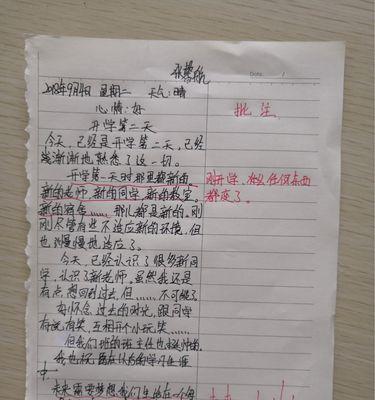 张馨航
Date. /
2018年9月4日 星期二 天气:晴
心情:好
批注
开学第二天
今天,已经是开学第二天,已经
渐渐地熟悉了这一切。
开学第一天时那里都新的,
新的老师,新的同学,新的教室,
新的宿舍……那儿都是新的。刚
刚开学,
都
了。
刚尽管有些不适应新的环境,但
也慢慢地适应了。
今天,已经认识了很多新同
学,认识了新老师。虽然我还是
有点想回到过去,但……不可能了
有怀念过去的时光,跟同学
有说有笑,互相开个小玩笑……
但我们班的班主任也
我也
中。
未来需要梦想我们生活在一个每